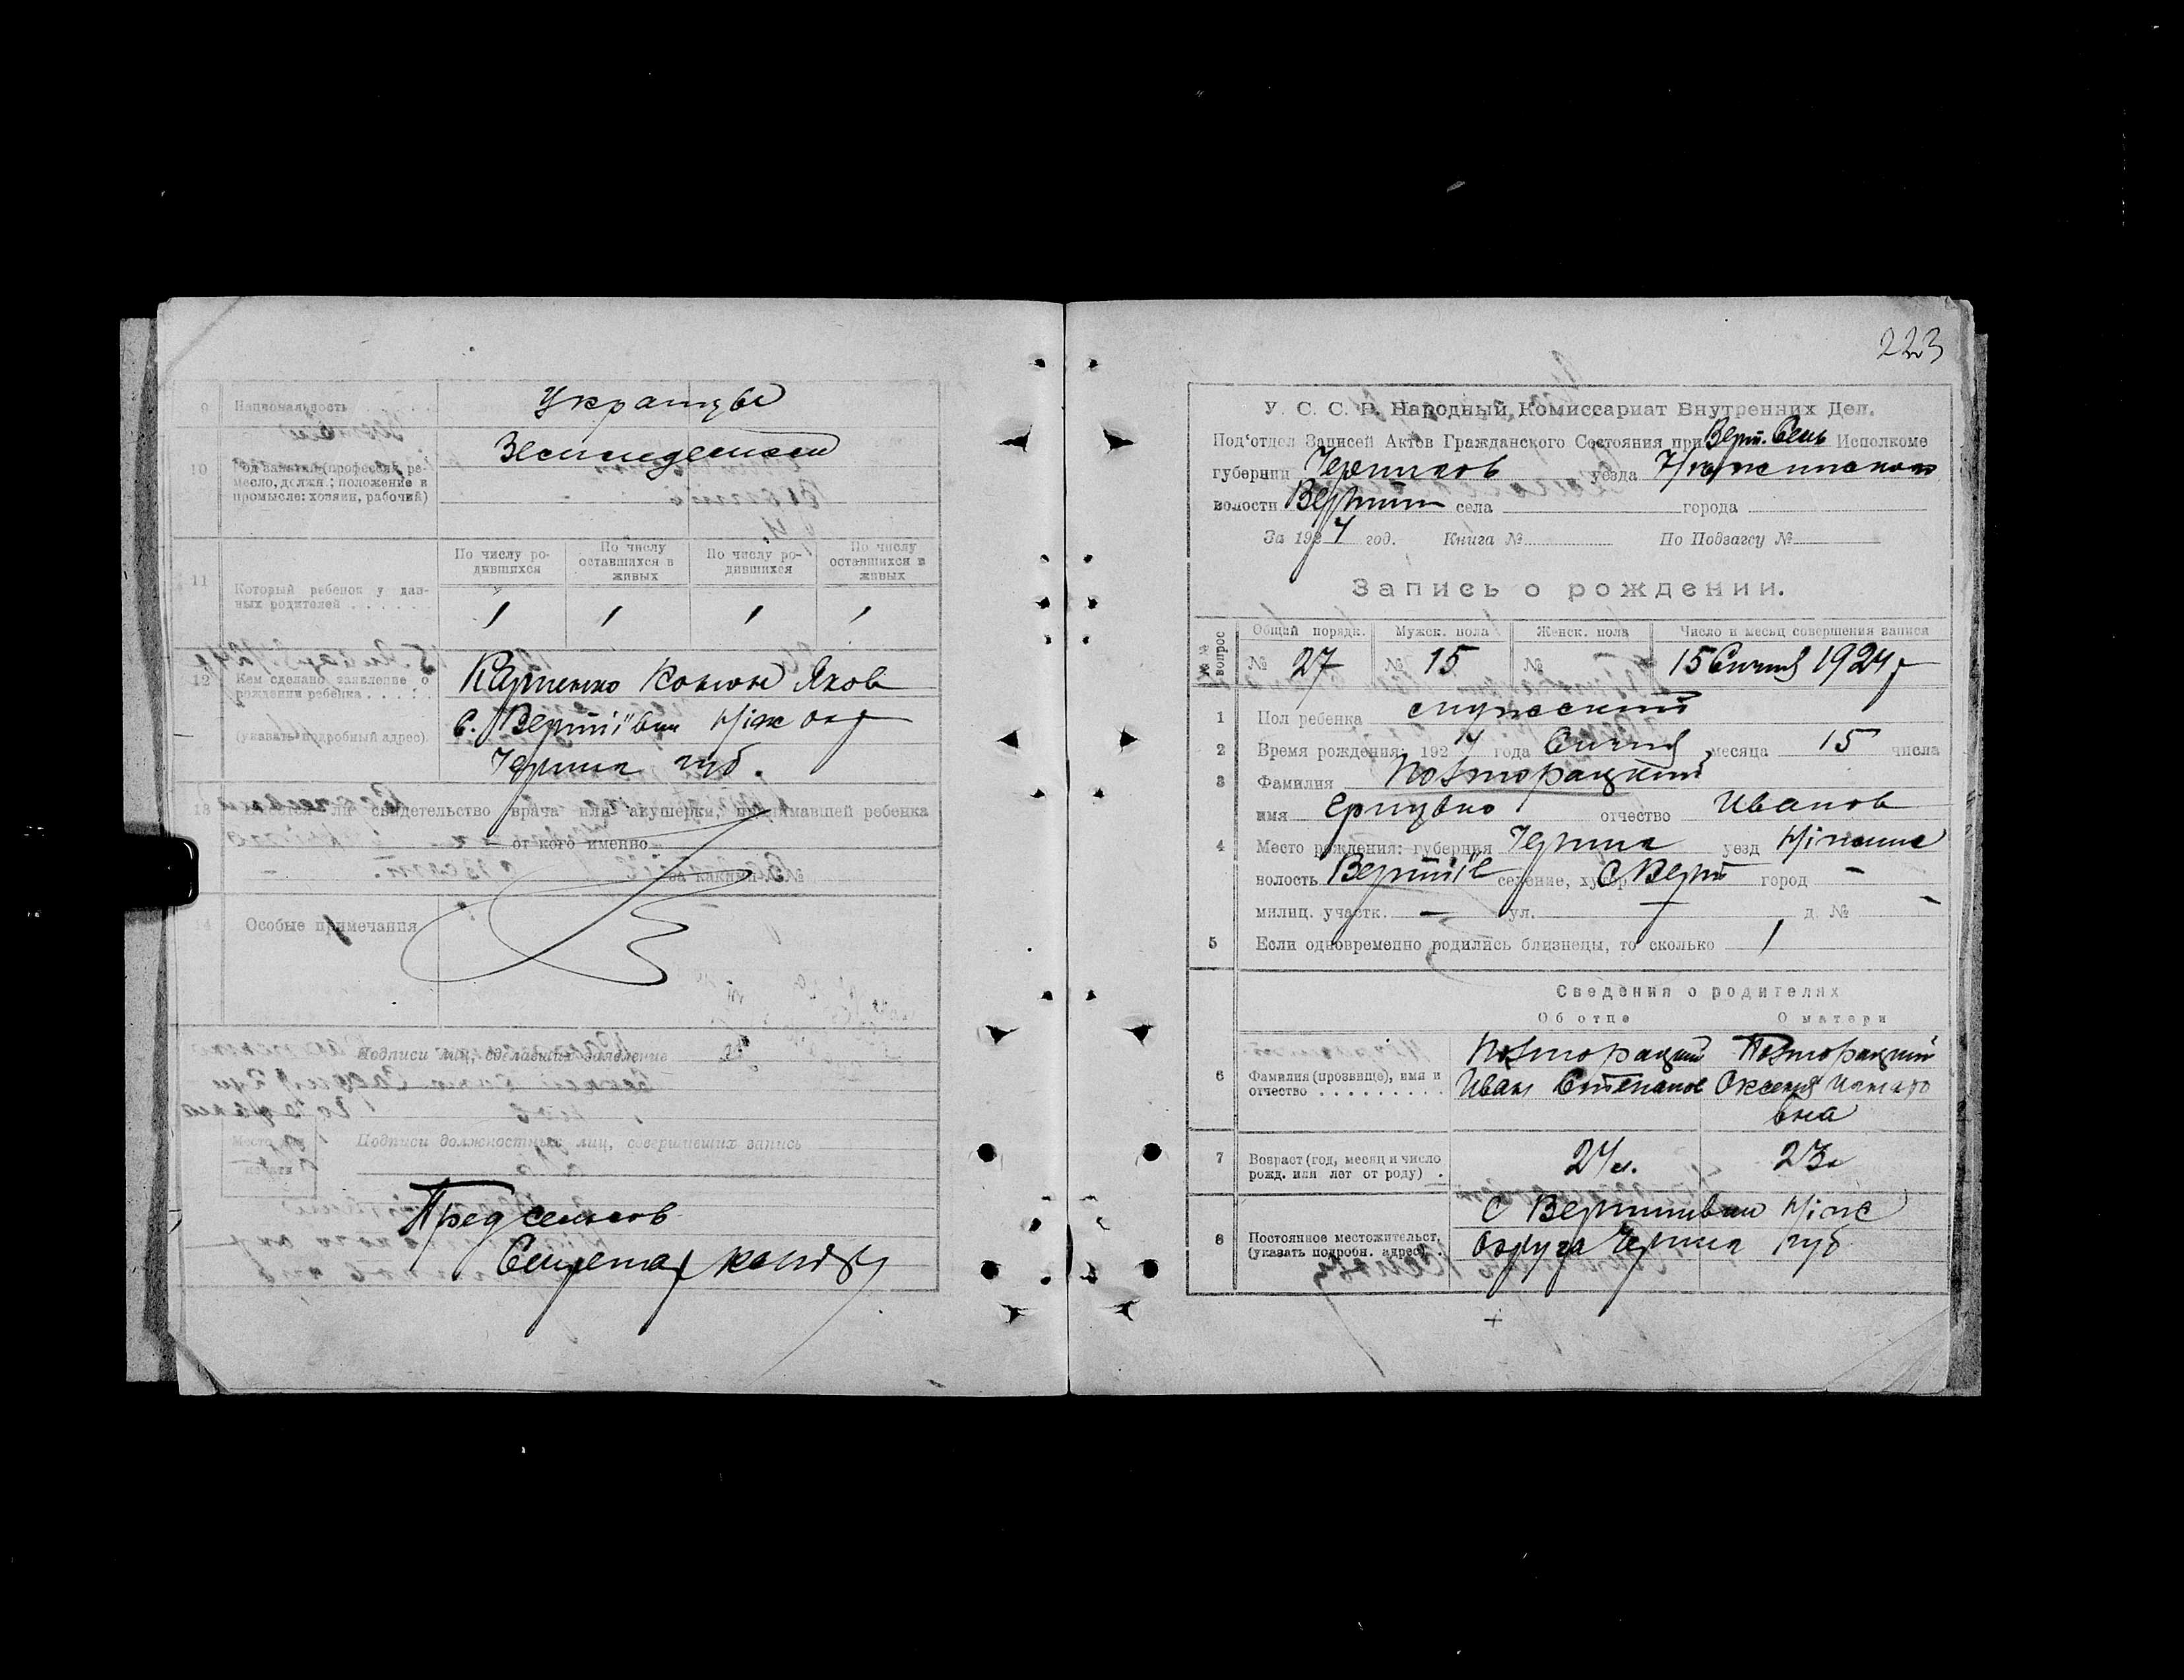 9 Национальность
Украинцы
10 Род занятий (профессия, ремесло, должн.; положение в промысле: хозяин, рабочий)
11 Который ребенок у данных родителей
По числу родившихся
По числу оставшихся в живых
По числу родившихся
По числу оставшихся в живых
1 1 1 1
12 Кем сделано заявление о рождении ребенка
(указать подробный адрес)
Карпенко Яков
с. Вертіївки Ніж окр
Черниг губ.
13 Имеется ли свидетельство врача или акушерки, принимавшей ребенка
от кого именно
за каким №
14 Особые примечания
Подписи лиц, сделавших заявление
Место для печати
Подписи должностных лиц, совершивших запись
Предсельсов
223
У. С. С. Р. Народный Комиссариат Внутренних Дел.
Под'отдел Записей Актов Гражданского Состояния при Верт. Сель Исполкоме
губернии Чернигов уезда Нежинского
волости Вертии села города
За 1924 год. Книга № По Подзагсу №
Запись о рождении.
№№ вопрос
Общий порядк. Мужск. пола Женск. пола Число и месяц совершения записи
№ 27 № 15 № 15 Січня 1924 г
1 Пол ребенка мужеский
2 Время рождения: 1924 года Січня месяца 15 числа
3 Фамилия Полторацкий
имя отчество Иванов
4 Место рождения: губерния Черниг уезд Ніжинс
волость Вертіїв селение, хутор С Верт город -
милиц. участк. - ул. - д. № -
5 Если одновременно родились близнецы, то сколько 1
Сведения о родителях
Об отце О матери
6 Фамилия (прозвище), имя и отчество
Полторацкий Полторацкий
Иван Степанов Оксенія
вна
7 Возраст (год, месяц и число рожд. или лет от роду)
24 л. 23 л
8 Постоянное местожительст. (указать подробн. адрес)
С Вертиївки Ніжс
Округа Черниг губ